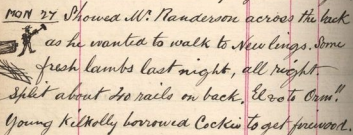 MON 27 Showed Mr. Randerson across the back
as he wanted to walk to Newlings. Some
fresh lambs last night, all right.
Split about 40 rails on back. to Orm"
Young borrowed Cockie to get firewood